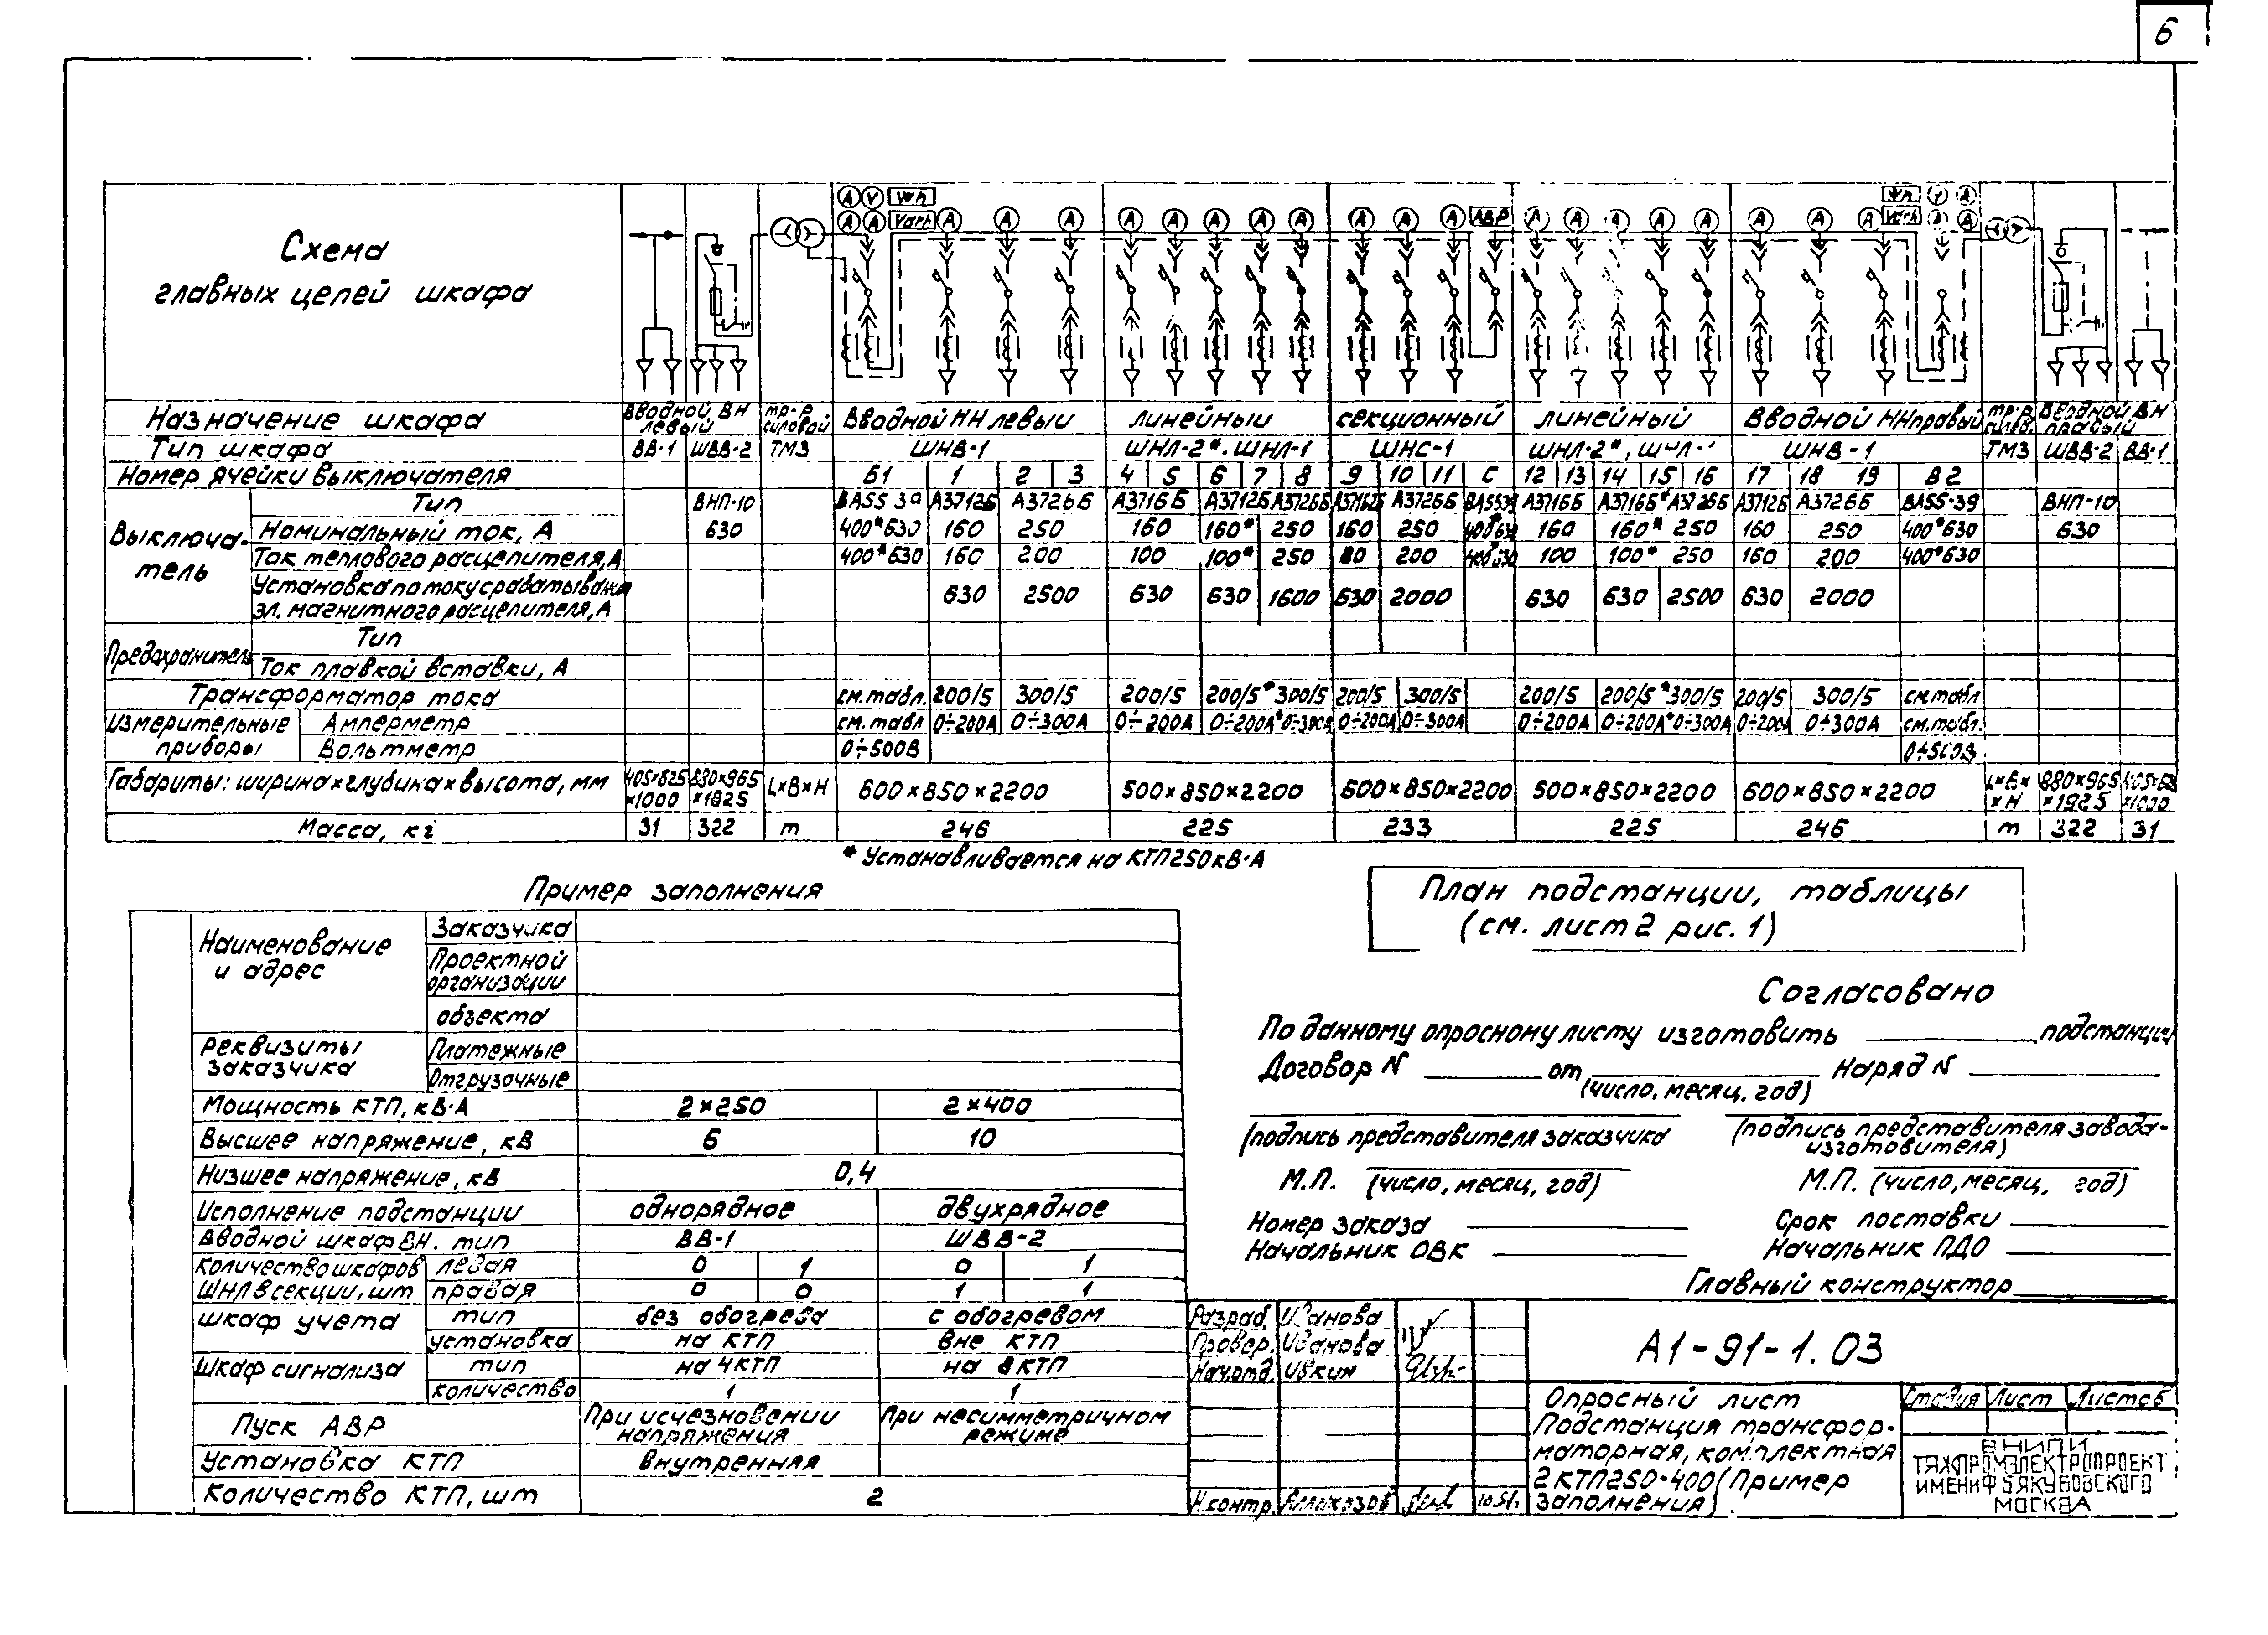 6
Схема
главных цепей шкафа
A V Wh
A A Varh A A A A A A A A A A A АВР A A A A A A A A
Назначение шкафа Вводной ВН левый тр-р силовой Вводной НН левый линейный секционный линейный Вводной НН правый тр-р силов. Вводной ВН правый
Тип шкафа ВВ-1 ШВВ-2 ТМЗ ШНВ-1 ШНЛ-2*, ШНЛ-1 ШНС-1 ШНЛ-2*, ШНЛ-1 ШНВ-1 ТМЗ ШВВ-2 ВВ-1
Номер ячейки выключателя Б1 1 2 3 4 5 6 7 8 9 10 11 С 12 13 14 15 16 17 18 19 В2
Выключатель
Тип ВНП-10 ВА55 39 А3712Б А3726Б А3716Б А3712Б А3726Б А3716Б А3726Б ВА5539 А3716Б А3716Б* А3726Б А3712Б А3726Б ВА55-39 ВНП-10
Номинальный ток, А 630 400*630 160 250 160 160* 250 160 250 400*630 160 160* 250 160 250 400*630 630
Ток теплового расцепителя, А 400*630 160 200 100 100* 250 80 200 400*630 100 100* 250 160 200 400*630
Установка по току срабатывания
эл. магнитного расцепителя, А 630 2500 630 630 1600 630 2000 630 630 2500 630 2000
Предохранитель
Тип
Ток плавкой вставки, А
Трансформатор тока см.табл. 200/5 300/5 200/5 200/5* 300/5 200/5 300/5 200/5 200/5* 300/5 200/5 300/5 см.табл
Измерительные приборы
Амперметр см.табл 0÷200А 0÷300А 0÷200А 0÷200А* 0÷300А 0÷200А 0÷300А 0÷200А 0÷200А* 0÷300А 0÷200А 0÷300А см.табл.
Вольтметр 0÷500В 0÷500В
Габариты: ширина×глубина×высота, мм 405×825×1000 880×965×1925 L×B×H 600×850×2200 500×850×2200 600×850×2200 500×850×2200 600×850×2200 L×B××H 880×965×1925 405×825×1000
Масса, кг 31 322 m 246 225 233 225 246 m 322 31
* Устанавливается на КТП250кВ·А
Пример заполнения
Наименование и адрес
Заказчика
Проектной организации
объекта
Реквизиты заказчика
Платежные
Отгрузочные
Мощность КТП, кВ·А 2×250 2×400
Высшее напряжение, кВ 6 10
Низшее напряжение, кВ 0,4
Исполнение подстанции однорядное двухрядное
Вводной шкаф ВН. тип ВВ-1 ШВВ-2
Количество шкафов ШНЛ в секции, шт
левая 0 1 0 1
правая 0 0 1 1
шкаф учета
тип без обогрева с обогревом
установка на КТП вне КТП
Шкаф сигнализа
тип на 4КТП на 8КТП
количество 1 1
Пуск АВР При исчезновении напряжения При несимметричном режиме
Установка КТП внутренняя
Количество КТП, шт 2
План подстанции, таблицы
(см. лист 2 рис. 1)
Согласовано
По данному опросному листу изготовить подстанции
Договор N от Наряд N
(число, месяц, год)
(подпись представителя заказчика (подпись представителя завода-
изготовителя)
М.П. (число, месяц, год) М.П. (число, месяц, год)
Номер заказа Срок поставки
Начальник ОВК Начальник ПДО
Главный конструктор
Разраб. Иванова
Провер. Иванова
Нач.отд. Ивкин
Н.контр.
А1-91-1.03
Опросный лист
Подстанция трансфор-
маторная, комплектная
2КТП250-400 (Пример
заполнения).
Стадия Лист Листов
ВНИПИ
ТЯЖПРОМЭЛЕКТРОПРОЕКТ
ИМЕНИ Ф Б ЯКУБОВСКОГО
МОСКВА